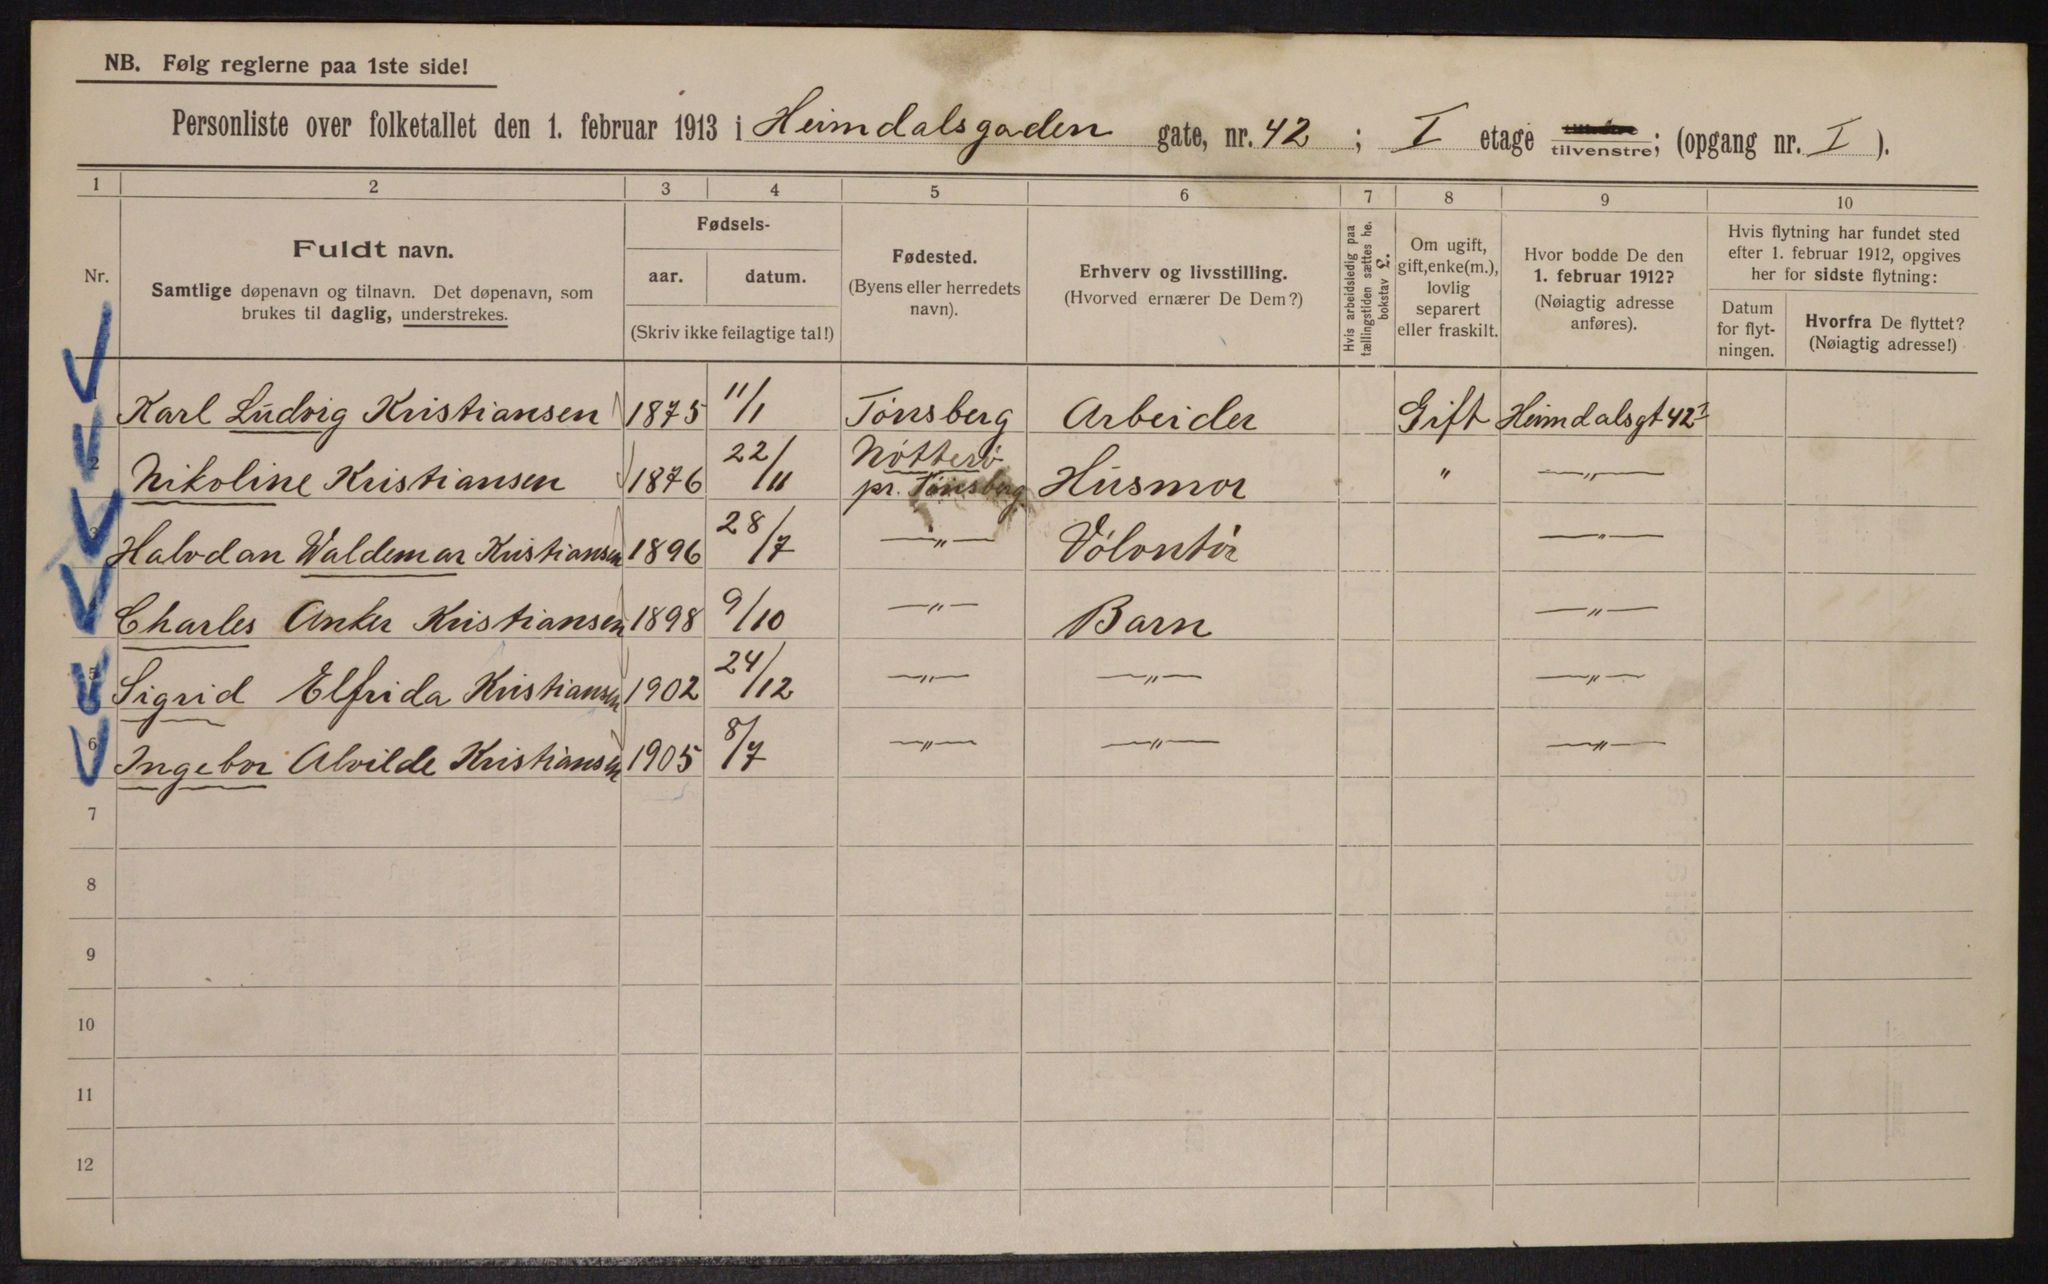 NB. Følg reglerne paa 1ste side!
Personliste over folketallet den 1. februar 1913 i Heimdalsgaden gate, nr. 42 ; I etage tilvenstre; (opgang nr. I ).
1 2 3 4 5 6 7 8 9 10
Nr.
Fuldt navn.
Samtlige døpenavn og tilnavn. Det døpenavn, som
brukes til daglig, understrekes.
Fødsels-
aar. datum.
(Skriv ikke feilagtige tal!)
Fødested.
(Byens eller herredets
navn).
Erhverv og livsstilling.
(Hvorved ernærer De Dem?)
Hvis arbeidsledig paa
tællingstiden sættes he.
bokstav L.
Om ugift,
gift, enke(m.),
lovlig
separert
eller fraskilt.
Hvor bodde De den
1. februar 1912?
(Nøiagtig adresse
anføres).
Hvis flytning har fundet sted
efter 1. februar 1912, opgives
her for sidste flytning:
Datum
for flyt-
ningen.
Hvorfra De flyttet?
(Nøiagtig adresse!)
Karl Ludvig Kristiansen 1875 11/1 Tønsberg Arbeider Gift Heimdalsgt 42 I
2 Nikoline Kristiansen 1876 22/11 Nøtterø pr. Tønsberg Husmor " —"—
3 Halvdan Waldemar Kristiansen 1896 28/7 —"— Volontør —"—
Charles Anker Kristiansen 1898 9/10 —"— Barn —"—
5 Sigrid Elfrida Kristiansen 1902 24/12 —"— —"— —"—
6 Ingebor Alvilde Kristiansen 1905 8/7 —"— —"— —"—
7
8
9
10
11
12